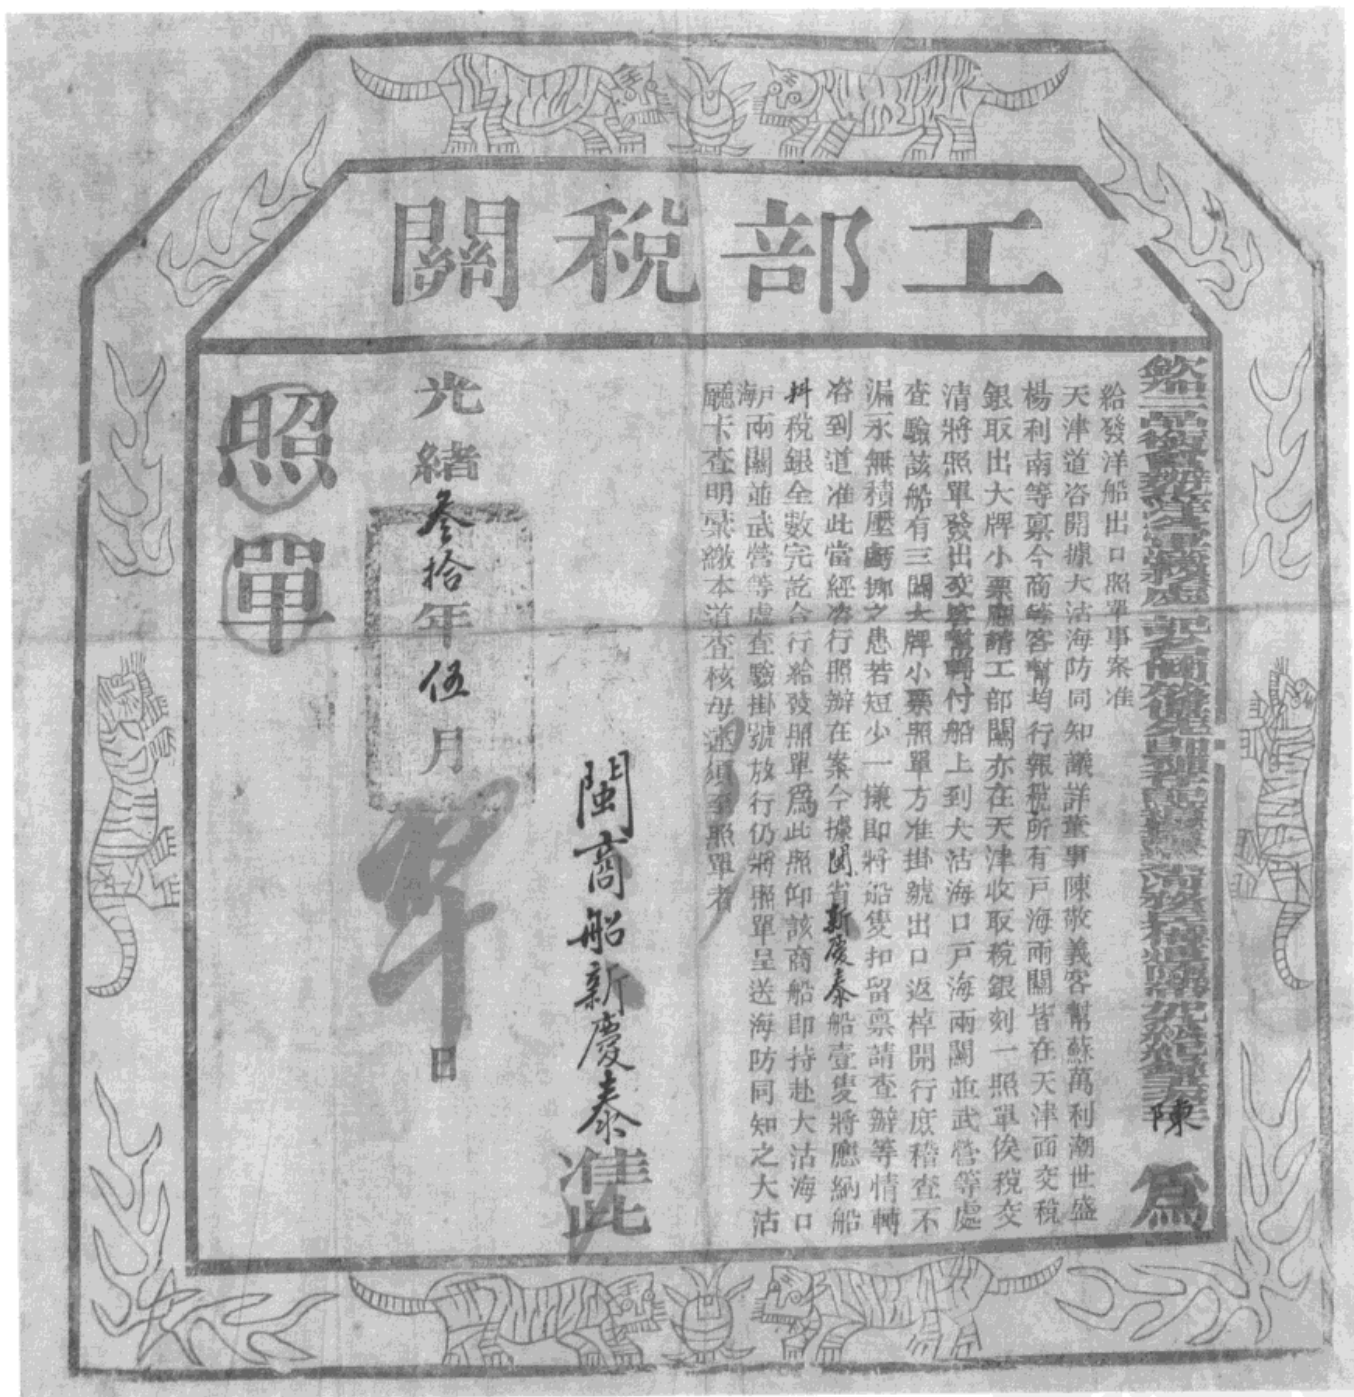 工部稅關
欽 陳 為
給發洋船出口照單事案准
天津道咨開據大沽海防同知議詳董事陳敬義客幫蘇萬利潮世盛
楊利南等稟今商等客幫均行報稅所有戶海兩關皆在天津面交稅
銀取出大牌小票應請工部關亦在天津收取稅銀刻一照單俟稅交
清將照單發出交客幫轉付船上到大沽海口戶海兩關並武營等處
查驗該船有三關大牌小票照單方准掛號出口返棹開行庶稽查不
漏永無積壓 挪之患若短少一 即將船隻扣留稟請查辦等情轉
咨到道准此當經咨行照辦在案今據閩省新慶泰船壹隻將應納船
料稅銀全數完訖合行給發照單為此照仰該商船即持赴大沽海口
戶海兩關並武營等處查驗掛號放行仍將照單呈送海防同知之大沽
廳卡查明 繳本道查核毋 須至照單者
閩商船新慶泰准此
光緒叁拾年伍月 日
照單